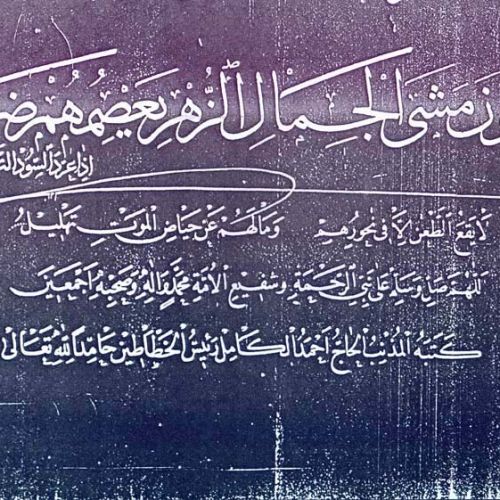 ن مَشْيَ الْجِمَالِ الزُّهْرِ يَعْصِمُهُمْ ضَر
اذا عرد السود الت
لَا يَقَعُ الطَّعْنُ إِلَّا فِي نُحُورِهِمْ وَمَا لَهُمْ عَنْ حِيَاضِ الْمَوْتِ تَهْلِيلُ
اللهم صل وسلم على نبي الرحمة وشفيع الأمة محمد وآله وصحبه أجمعين
كتبه المذنب الحاج أحمد الكامل رئيس الخطاطين حامدا لله تعالى